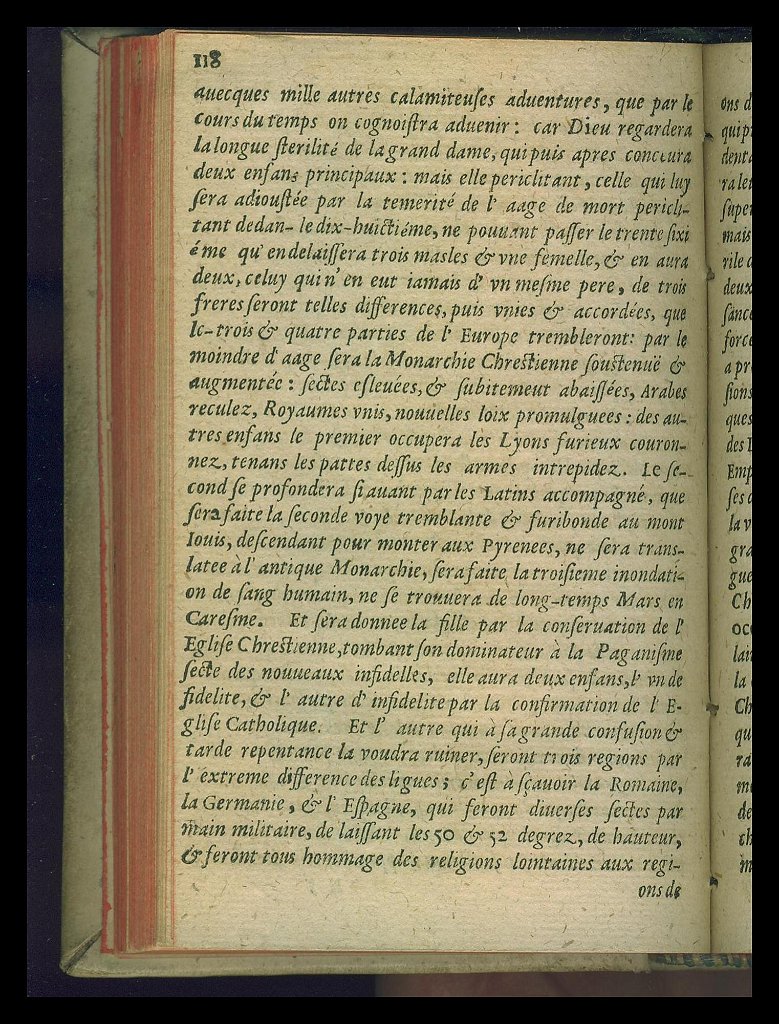 118
auecques mille autres calamiteuſes aduentures, que par le
cours du temps on cognoiſtra aduenir : car Dieu regardera
la longue ſterilité de la grand dame, qui puis apres conceura
deux enfans principaux : mais elle periclitant, celle qui luy
ſera adiouſtée par la temerité de l' aage de mort pericli-
tant dedan- le dix-huictiéme, ne pouuant paſſer le trente ſixi
éme qu' en delaiſſera trois masles & vne femelle, & en aura
deux, celuy qui n' en eut iamais d' vn meſme pere, de trois
freres ſeront telles differences, puis vnies & accordées, que
le-trois & quatre parties de l' Europe trembleront: par le
moindre d' aage ſera la Monarchie Chreſtienne ſouſtenuë &
augmentée : ſectes eſleuées, & ſubitemeut abaiſſées, Arabes
reculez, Royaumes vnis, nouuelles loix promulguees : des au-
tres enfans le premier occupera les Lyons furieux couron-
nez, tenans les pattes deſſus les armes intrepidez. Le ſe-
cond ſe profondera ſi auant par les Latins accompagné, que
ſera faite la ſeconde voye tremblante & furibonde au mont
Iouis, deſcendant pour monter aux Pyrenees, ne ſera trans-
latee à l' antique Monarchie, ſera faite la troiſieme inondati-
on de ſang humain, ne ſe trouuera de long-temps Mars en
Careſme. Et ſera donnee la fille par la conſeruation de l'
Egliſe Chreſtienne, tombant ſon dominateur à la Paganiſme
ſecte des nouueaux infidelles, elle aura deux enfans, l' vn de
fidelite, & l' autre d' infidelite par la confirmation de l' E-
gliſe Catholique. Et l' autre qui à ſa grande confuſion &
tarde repentance la voudra ruiner, ſeront trois regions par
l' extreme difference des ligues ; c' eſt à ſçauoir la Romaine,
la Germanie, & l' Eſpagne, qui feront diuerſes ſectes par
main militaire, de laiſſant les 50 & 52 degrez, de hauteur,
& feront tous hommage des religions lointaines aux regi-
ons de